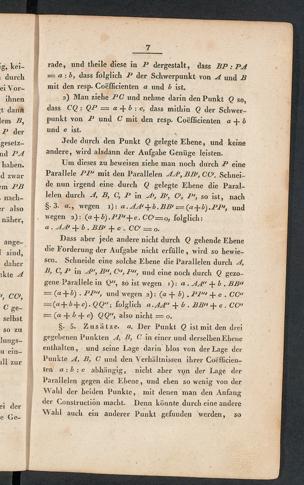 7
rade, und theile diese in P dergestalt, dass BP : PA
= a : b, dass folglich P der Schwerpunkt von A und B
mit den resp. Coëfficienten a und b ist.
2) Man ziehe PC und nehme darin den Punkt Q so,
dass CQ : QP = a + b : c, dass mithin Q der Schwer-
punkt von P und C mit den resp. Coëfficienten a + b
und c ist.
Jede durch den Punkt Q gelegte Ebene, und keine
andere, wird alsdann der Aufgabe Genüge leisten.
Um dieses zu beweisen ziehe man noch durch P eine
Parallele PP' mit den Parallelen AA', BB', CC'. Schnei-
de nun irgend eine durch Q gelegte Ebene die Paral-
lelen durch A, B, C, P in A', B', C', P', so ist, nach
§. 3. a., wegen 1): a. AA' + b. BB' = (a+b). PP', und
wegen 2): (a+b). PP' + c. CC' = 0, folglich:
a. AA' + b. BB' + c. CC' = 0.
Dass aber jede andere nicht durch Q gehende Ebene
die Forderung der Aufgabe nicht erfülle, wird so bewie-
sen. Schneide eine solche Ebene die Parallelen durch A,
B, C, P in A'', B'', C'', P'', und eine noch durch Q gezo-
gene Parallele in Q'', so ist wegen 1): a. AA'' + b. BB''
= (a+b). PP'', und wegen 2): (a+b). PP'' + c. CC''
= (a+b+c). QQ''; folglich a. AA'' + b. BB'' + c. CC''
= (a+b+c) QQ'', also nicht = 0.
§. 5. Zusätze. a. Der Punkt Q ist mit den drei
gegebenen Punkten A, B, C in einer und derselben Ebene
enthalten, und seine Lage darin blos von der Lage der
Punkte A, B, C und den Verhältnissen ihrer Coëfficien-
ten a : b : c abhängig, nicht aber von der Lage der
Parallelen gegen die Ebene, und eben so wenig von der
Wahl der beiden Punkte, mit denen man den Anfang
der Construction macht. Denn könnte durch eine andere
Wahl auch ein anderer Punkt gefunden werden, so